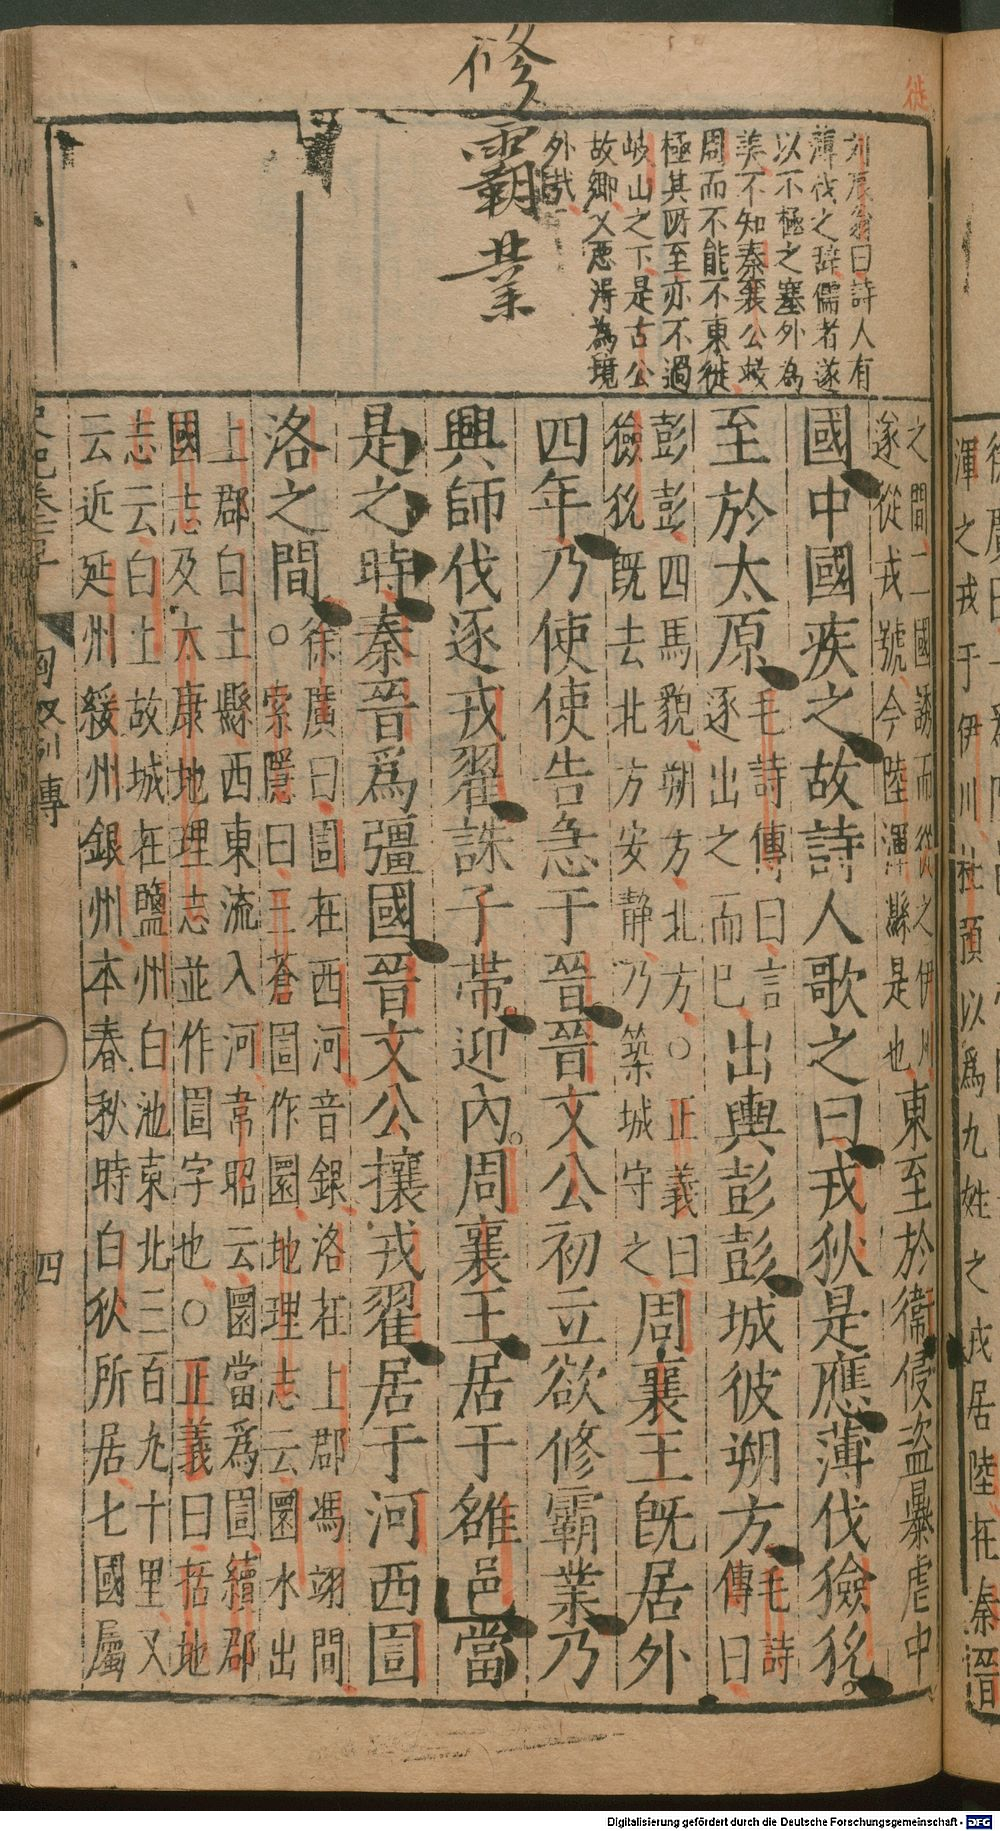 徙
修霸業
劉辰翁曰詩人有
薄伐之辭儒者遂
以不極之塞外為
美不知秦襄公岐
周而不能不東徙
極其所至亦不過
岐山之下是古公
故鄉又惡得為境
外哉
之間二國誘而從之伊川
遂從戎號今陸渾縣是也
東至於衞侵盜暴虐中
國中國疾之故詩人歌之曰戎狄是應薄伐獫狁
至於太原
毛詩傳曰言
逐出之而已
出輿彭彭城彼朔方
毛詩
傳曰
彭彭四馬貌朔方北方○正義曰
獫狁既去北方安静乃築城守之
周襄王既居外
四年乃使使告急于晉晉文公初立欲修霸業乃
興師伐逐戎翟誅子帶迎內周襄王居于雒邑當
是之時秦晉爲彊國晉文公攘戎翟居于河西圁
洛之間○
徐廣曰圁在西河音銀洛在上郡馮翊間
索隱曰三蒼圁作圜地理志云圜水出
上郡白土縣西東流入河韋昭云圜當爲圁續郡
國志及太康地理志並作圁字也○正義曰括地
志云白土故城在鹽州白池東北三百九十里又
云近延州綏州銀州本春秋時白狄所居七國屬
匈奴列傳
四
渾之戎于伊川杜預以爲九姓之戎居陸在秦晉
Digitalisierung gefördert durch die Deutsche Forschungsgemeinschaft - DFG